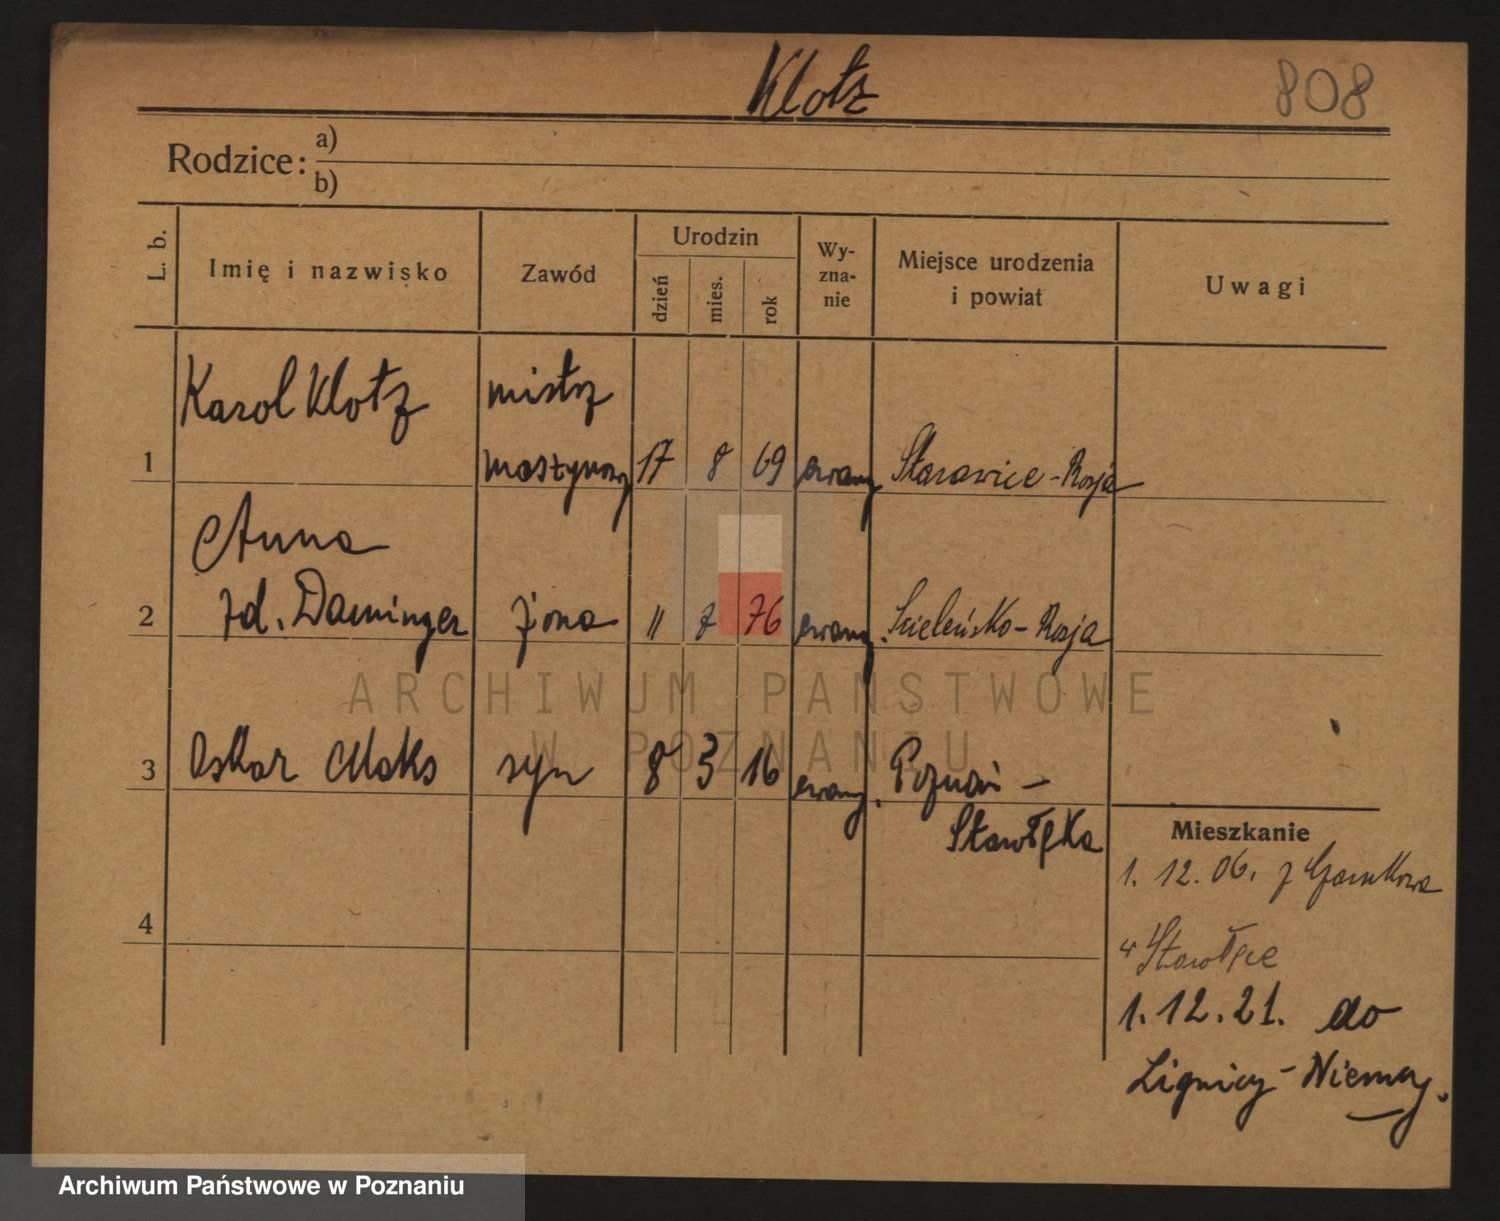 Klotz
808
Rodzice: a)
b)
L. b.
Imię i nazwisko
Zawód
Urodzin
dzień
mies.
rok
Wy-
zna-
nie
Miejsce urodzenia
i powiat
Uwagi
Karol Klotz mistrz
1 maszynowy 17 8 69 ewang. Starawice - Rosja
Anna
2 zd. Daminger żona 11 7 76 ewang. - Rosja
3 Oskar Maks syn 8 3 16 ewang. Poznań -
Starołęka
4
Mieszkanie
1. 12. 06. z Czarnkowa
w Starołęce
1. 12. 21. do
Lignicy - Niemcy.
ARCHIWUM PAŃSTWOWE
W POZNANIU
Archiwum Państwowe w Poznaniu